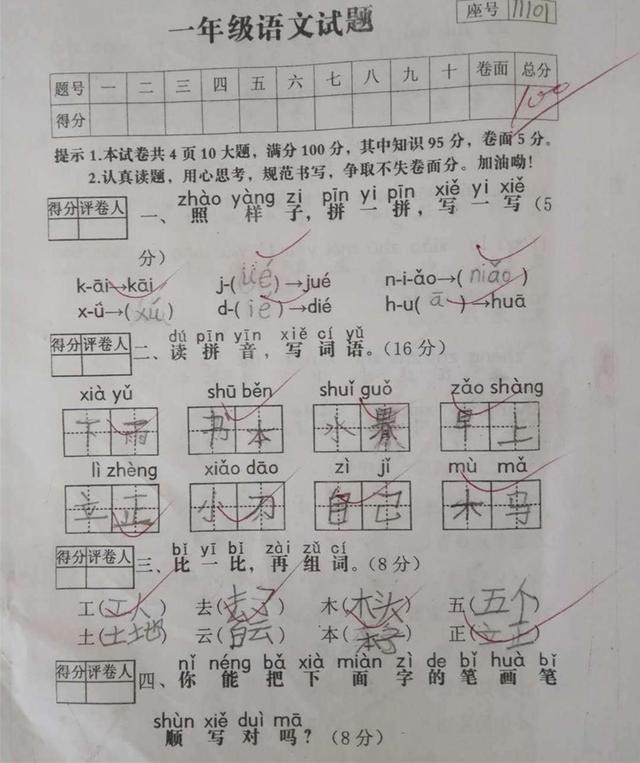 一年级语文试题
座号 11101
题号 一 二 三 四 五 六 七 八 九 十 卷面 总分
得分 100
提示 1.本试卷共4页10大题，满分100分，其中知识95分，卷面5分。
2.认真读题，用心思考，规范书写，争取不失卷面分。加油呦！
得分 评卷人
zhào yàng zi pīn yi pīn xiě yi xiě
一、照样子，拼一拼，写一写(5
分)
k-āi→kāi j-(üé)→jué n-i-ǎo→(niǎo)
x-ǘ→(xú) d-(ié)→dié h-u(ā)→huā
得分 评卷人
dú pīn yīn xiě cí yǔ
二、读拼音，写词语。(16分)
xià yǔ shū běn shuǐ guǒ zǎo shàng
下雨 书本 水果 早上
lì zhèng xiǎo dāo zì jǐ mù mǎ
立正 小刀 自己 木马
得分 评卷人
bǐ yī bǐ zài zǔ cí
三、比一比，再组词。(8分)
工(工人) 去(去了) 木(木头) 五(五个)
土(土地) 云(白云) 本(本子) 正(立正)
得分 评卷人
nǐ néng bǎ xià miàn zì de bǐ huà bǐ
四、你能把下面字的笔画笔
shùn xiě duì mā
顺写对吗？(8分)